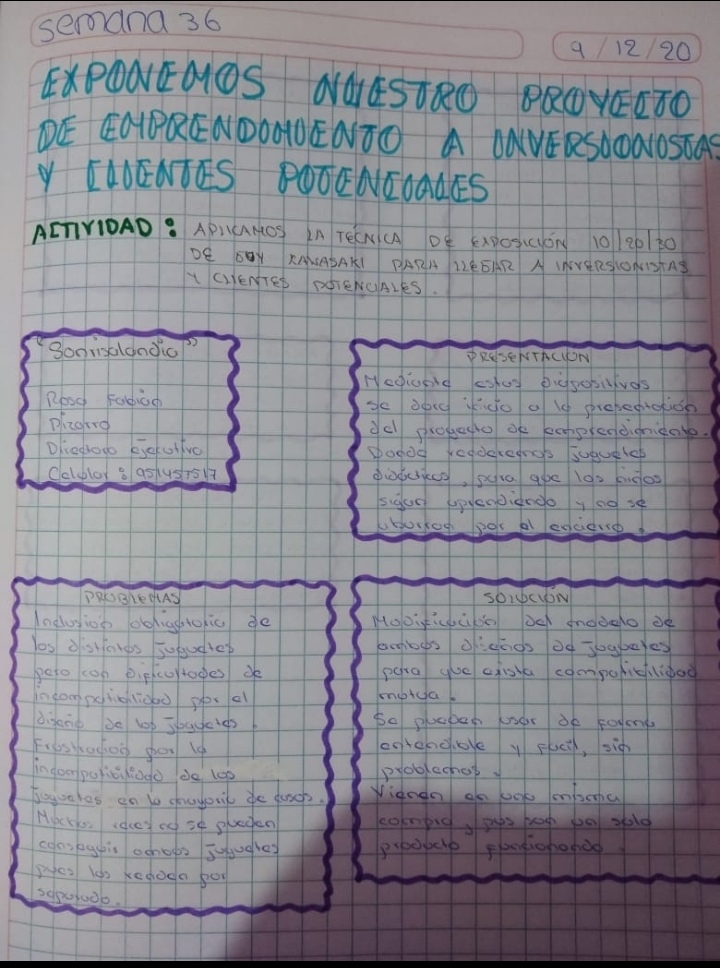 semana 36
9/12/20
EXPONEMOS NUESTRO PROYECTO
DE EMPRENDIMIENTO A INVERSIONISTAS
Y CLIENTES POTENCIALES
ACTIVIDAD: APLICAMOS LA TÉCNICA DE EXPOSICIÓN 10/20/30
DE GUY KAWASAKI PARA LLEGAR A INVERSIONISTAS
Y CLIENTES POTENCIALES.
"Sonrisalandia"
Rosa Fabián
Pizarro
Directora ejecutiva
Celular: 951457517
PRESENTACIÓN
Mediante estas diapositivas
se dara inicio a la presentación
del proyecto de emprendimiento.
Donde venderemos juguetes
didácticos, para que los niños
sigan aprendiendo y no se
aburran por el encierro.
PROBLEMAS
Inclusión obligatoria de
los distintos juguetes
pero con dificultades de
incompatibilidad por el
diseño de los juguetes.
Frustración por la
incompatibilidad de los
juguetes en la mayoría de casos.
Muchas veces no se pueden
conseguir ambos juguetes
pues los venden por
separado.
SOLUCIÓN
Modificación del modelo de
ambos diseños de juguetes
para que exista compatibilidad
mutua.
Se pueden usar de forma
entendible y facil, sin
problemas.
Vienen en una misma
compra, pues son un solo
producto funcionando.